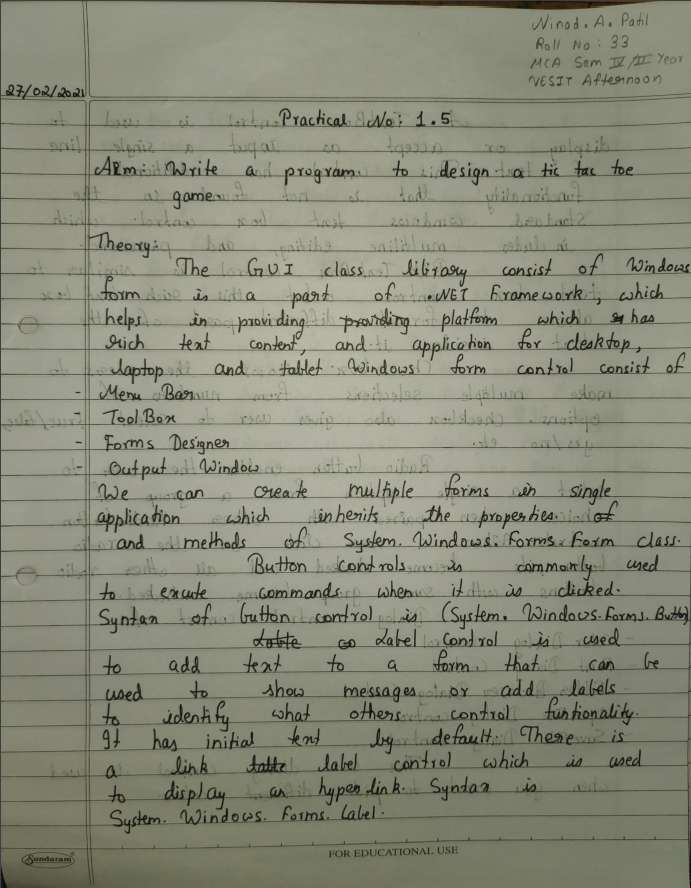 Ninad. A. Patil
Roll No : 33
MCA Sem IV/II Year
VESIT Afternoon
27/02/2021
Practical No: 1.5
Aim: Write a program to design a tic tac toe
game.
Theory:
The GUI class library consist of Windows
form is a part of .NET Framework, which
helps in providing providing platform which has
rich text content, and application for desktop,
laptop and tablet. Windows form control consist of
- Menu Bar
- Tool Box
- Forms Designer
- Output Window
We can create multiple forms in single
application which inherits the properties of
and methods of System. Windows. Forms. Form class.
Button controls is commonly used
to exicute commands when it is clicked.
Syntax of button control is (System. Windows. Forms. Button)
Label control is used
to add text to a form that can be
used to show messages or add labels
to identify what others control funtionality.
It has initial text by default. There is
a link label control which is used
to display an hyper link. Syntax is
System. Windows. Forms. Label.
Sundaram
FOR EDUCATIONAL USE